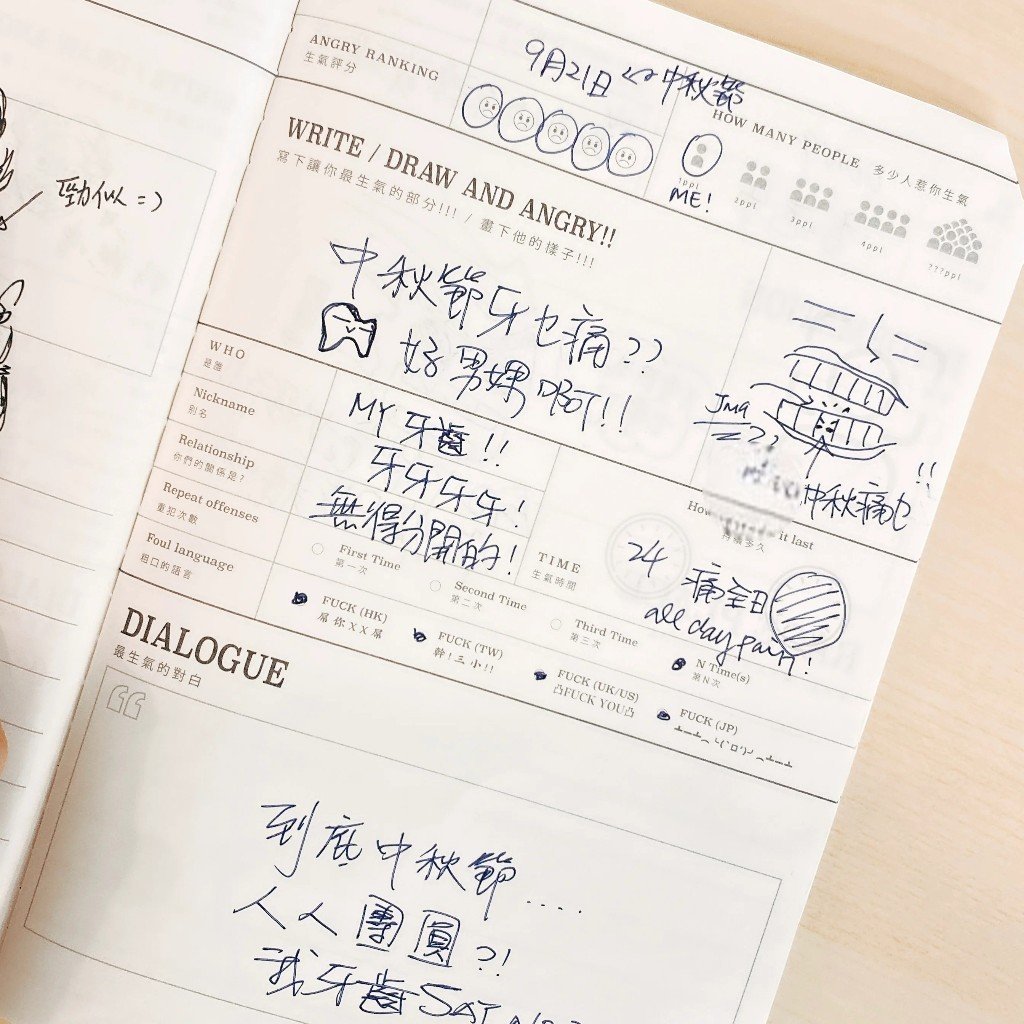 勁似 =)
9月21日 ↔ 中秋節
ANGRY RANKING
生氣評分
HOW MANY PEOPLE 多少人惹你生氣
1ppl
2ppl
3ppl
4ppl
???ppl
ME!
WRITE / DRAW AND ANGRY!!
寫下讓你最生氣的部分!!! / 畫下他的樣子!!!
中秋節牙也痛??
好男媽啊!!
中秋痛也!!
WHO
是誰
MY 牙齒!!
Nickname
別名
牙牙牙牙!
Relationship
你們的關係是?
無得分開的!
TIME
生氣時間
it last
持續多久
24 痛全日
all day pain!
Repeat offenses
重犯次數
First Time
第一次
Second Time
第二次
Third Time
第三次
N Time(s)
第N次
Foul language
粗口的語言
FUCK (HK)
屌你XX屌
FUCK (TW)
幹!三小!!
FUCK (UK/US)
凸FUCK YOU凸
FUCK (JP)
DIALOGUE
最生氣的對白
到底中秋節....
人人團圓?!
我牙齒